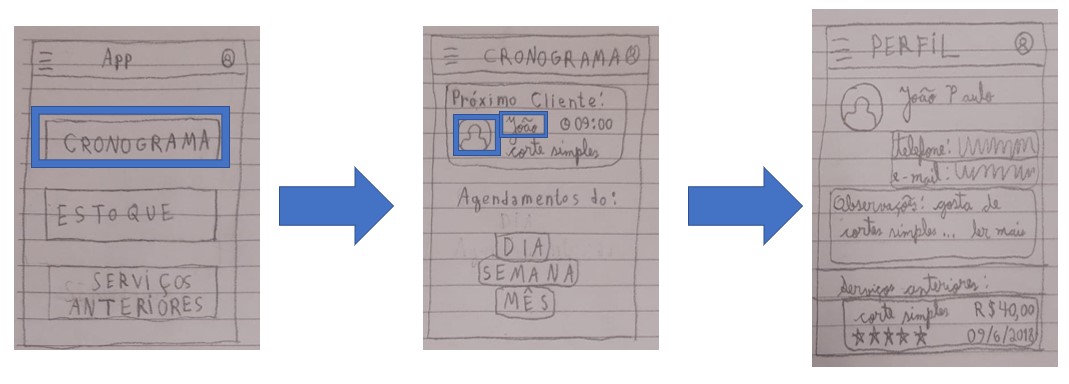 App
CRONOGRAMA
ESTOQUE
SERVIÇOS
ANTERIORES
CRONOGRAMA
Próximo Cliente:
João 09:00
corte simples
Agendamentos do:
DIA
SEMANA
MÊS
PERFIL
João Paulo
telefone:
e-mail:
Observações: gosta de
cortes simples... ler mais
Serviços anteriores:
corte simples R$40,00
★★★★★ 09/6/2018